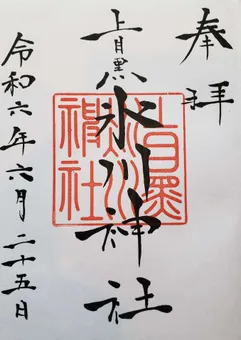 奉拝
上目黒氷川神社
令和六年六月二十五日
上目黒氷川神社